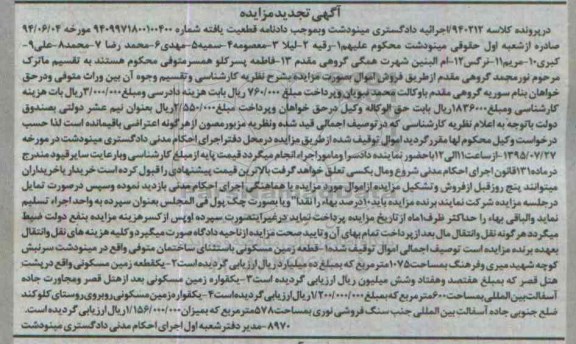 آگهی تجدید مزایده
در پرونده کلاسه ۹۴۰۲۱۲/اجرائیه دادگستری مینودشت وبموجب دادنامه قطعیت یافته شماره ۹۴۰۹۹۷۱۸۰۰۱۰۰۴۰۰ مورخه ۹۴/۰۶/۰۴
صادره از شعبه اول حقوقی مینودشت محکوم علیهم۱-رقیه ۲-لیلا ۳-معصومه۴-سمیه۵-مهدی۶-محمد رضا ۷-محمد۸-علی۹-
کبری۱۰-مریم۱۱-نرگس۱۲-ام البنین شهرت همگی گروهی مقدم ۱۳-فاطمه پسرکلو همسرمتوفی محکوم هستند به تقسیم ماترک
مرحوم نورمحمد گروهی مقدم ازطریق فروش اموال بصورت مزایده بشرح نظریه کارشناسی وتقسیم وجوه آن بین وراث متوفی ودرحق
خواهان بنام سوریه گروهی مقدم باوکالت محمد نبویان وپرداخت مبلغ ۷۶۰/۰۰۰ ریال بابت هزینه دادرسی ومبلغ ۳/۰۰۰/۰۰۰ریال بابت هزینه
کارشناسی ومبلغ۱۸۳۶۰۰۰ریال بابت حق الوکاله وکیل درحق خواهان وپرداخت مبلغ۲/۵۵۰/۰۰۰ریال بعنوان نیم عشر دولتی بصندوق
دولت باتوجه به اعلام نظریه کارشناسی که درتوصیف اجمالی قید شده ونظریه مزبورمصون ازهرگونه اعتراضی باقیمانده است لذا حسب
درخواست وکیل محکوم لها مقررگردید اموال توقیف شده ازطریق مزایده درمحل دفتراجرای احکام مدنی دادگستری مینودشت در مورخه
۱۳۹۵/۰۷/۲۷-ازساعت۱۱الی۱۲باحضور نماینده دادسرا ومامور اجراء انجام میگردد قیمت پایه ازمبلغ کارشناسی وبارعایت سایرقیود مندرج
درماده۱۳۱قانون اجرای احکام مدنی شروع ومال بکسی تعلق خواهد گرفت بالاترین قیمت پیشنهادی را قبول کرده است خریدار یا خریداران
میتوانند پنج روزقبل ازفروش و تشکیل مزایده ازاموال مورد مزایده با هماهنگی اجرای احکام مدنی بازدید نموده وسپس درصورت تمایل
درجلسه مزایده شرکت نمایند برنده مزایده باید ۱۰درصد بهاء را نقدا" ویا بصورت چک پول فی المجلس بعنوان سپرده به واحد اجراء تسلیم
نماید والباقی بهاء را حداکثر ظرف۱ماه ازتاریخ مزایده پرداخت نماید درغیراینصورت سپرده اوپس ازکسرهزینه مزایده بنفع دولت ضبط
میگردد هرگونه نقل وانتقال مال بعد ازپرداخت تمام بهای آن وتایید صحت مزایده ازناحیه دادگاه صورت میگیرد وکلیه هزینه های نقل وانتقال
بعهده برنده مزایده است توصیف اجمالی اموال توقیف شده۱-قطعه زمین مسکونی باستثنای ساختمان متوفی واقع در مینودشت سرنبش
کوچه شهید میری وفرهنگ بمساحت۱۰۷۵مترمربع که بمبلغ ده میلیارد ریال ارزیابی گردیده است۲-یکقطعه زمین مسکونی واقع درپشت
هتل قصر که بمبلغ هفتصد وهفتاد وشش میلیون ریال ارزیابی گردیده است۳-یکقواره زمین مسکونی بعد ازهتل قصر ومجاورت جاده
آسفالت بین المللی بمساحت۶۰۰مترمربع که بمبلغ ۱/۲۰۰/۰۰۰/۰۰۰ریال ارزیابی گردیده است۴-یکقواره زمین مسکونی روبروی روستای کلوکند
ضلع جنوبی جاده آسفالت بین المللی جنب سنگ فروشی نوری بمساحت۵۷۸مترمربع که بمیزان۱/۱۵۶/۰۰۰/۰۰۰ریال ارزیابی گردیده است.
۸۹۷۰-مدیر دفتر شعبه اول اجرای احکام مدنی دادگستری مینودشت